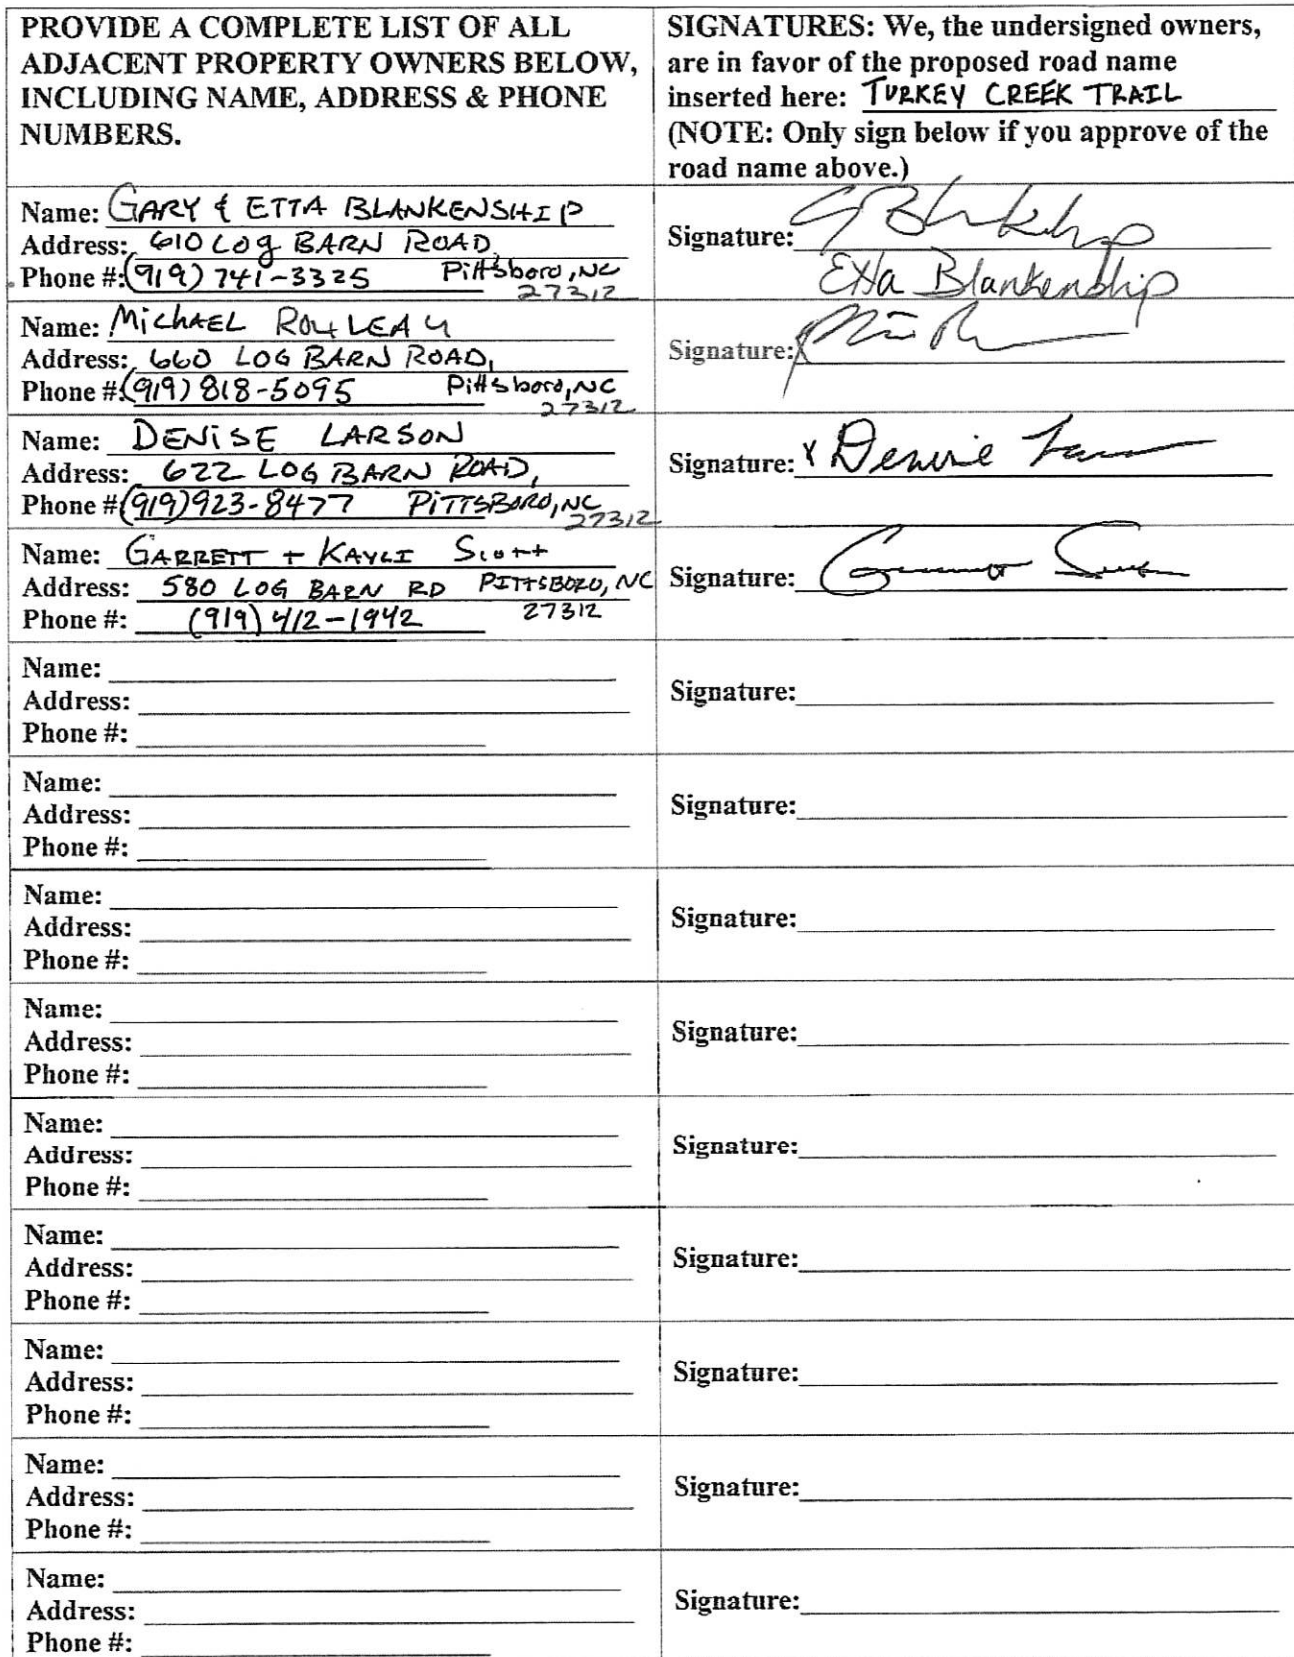 PROVIDE A COMPLETE LIST OF ALL
ADJACENT PROPERTY OWNERS BELOW,
INCLUDING NAME, ADDRESS & PHONE
NUMBERS.
SIGNATURES: We, the undersigned owners,
are in favor of the proposed road name
inserted here: TURKEY CREEK TRAIL
(NOTE: Only sign below if you approve of the
road name above.)
Name: GARY & ETTA BLANKENSHIP
Address: 610 Log BARN ROAD,
Phone #: (919) 741-3325 Pittsboro, NC
27312
Signature: G Blankenship
Etta Blankenship
Name: MICHAEL ROULEAU
Address: 660 LOG BARN ROAD,
Phone # (919) 818-5095 Pittsboro, NC
27312
Signature: X
Name: DENISE LARSON
Address: 622 LOG BARN ROAD,
Phone # (919) 923-8477 PITTSBORO, NC
27312
Signature: x Denise Larson
Name: GARRETT + KAYLI Scott
Address: 580 LOG BARN RD PITTSBORO, NC
Phone #: (919) 412-1942 27312
Signature: Garrett Scott
Name:
Address:
Phone #:
Signature:
Name:
Address:
Phone #:
Signature:
Name:
Address:
Phone #:
Signature:
Name:
Address:
Phone #:
Signature:
Name:
Address:
Phone #:
Signature:
Name:
Address:
Phone #:
Signature:
Name:
Address:
Phone #:
Signature:
Name:
Address:
Phone #:
Signature:
Name:
Address:
Phone #:
Signature: